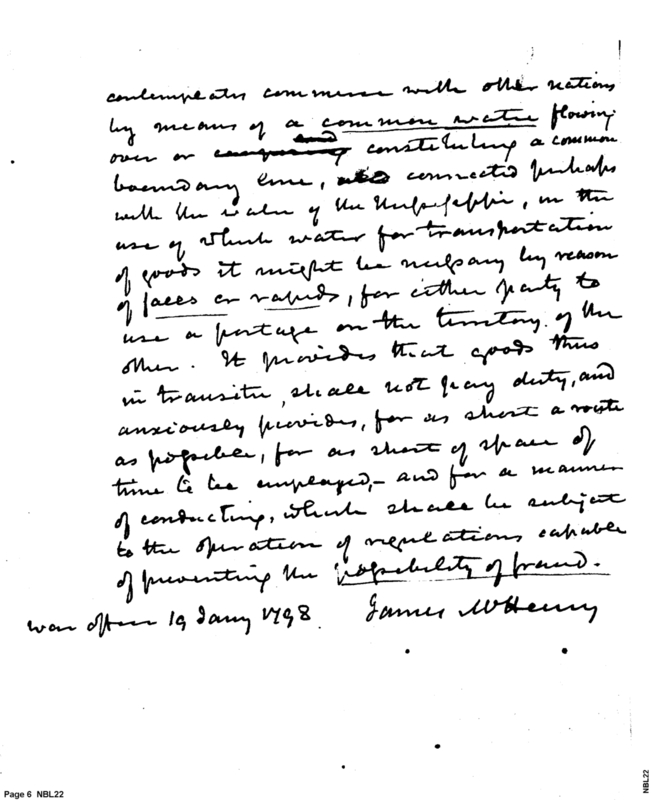 contemplates commerce with other nations
by means of a common water flowing
over or and constituting a common
boundary line, also connected perhaps
with the water of the Mississippi, in the
use of which water for transportation
of goods it might be necessary by reason
of falls or rapids, for either party to
use a portage on the territory of the
other. It provides that goods thus
in transitu, shall not pay duty, and
anxiously provides, for as short a route
as possible, for as short of space of
time to be employed, – and for a manner
of conducting, which shall be subject
to the operation of regulations capable
of preventing the possibility of fraud.
War office 19 Jany 1798. James McHenry
Page 6 NBL22
NBL22